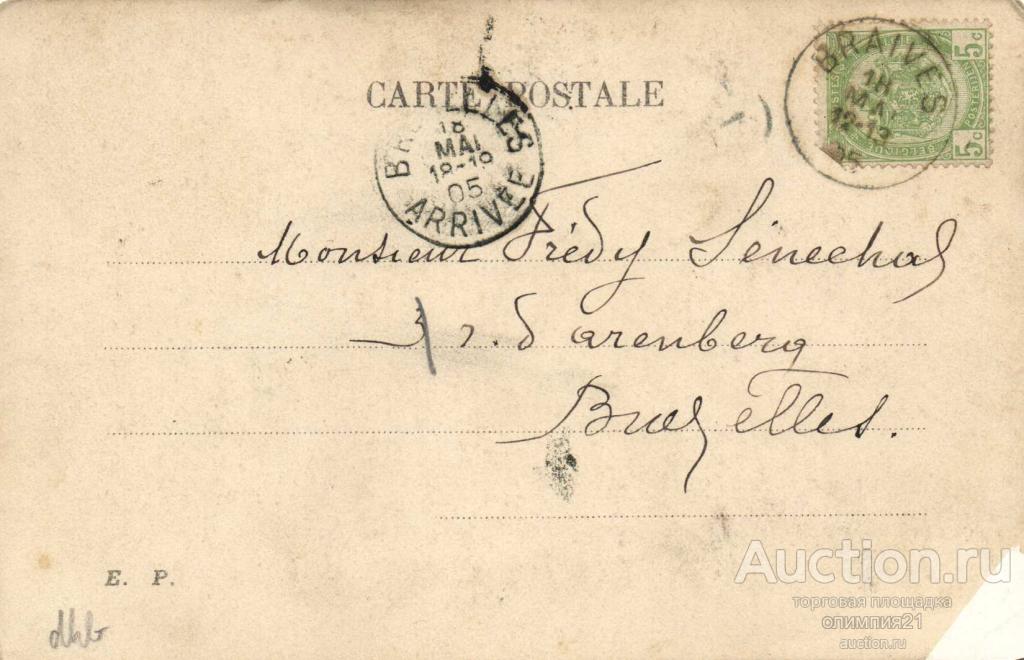 CARTE POSTALE
BRAIVES
18
MAI
12-13
05
5c
5c
BRUXELLES
18
MAI
18-19
05
ARRIVÉE
Monsieur Frédy Sénechal
3 r. d'arenberg
Bruxelles.
E. P.
Auction.ru
торговая площадка
олимпия21
auction.ru